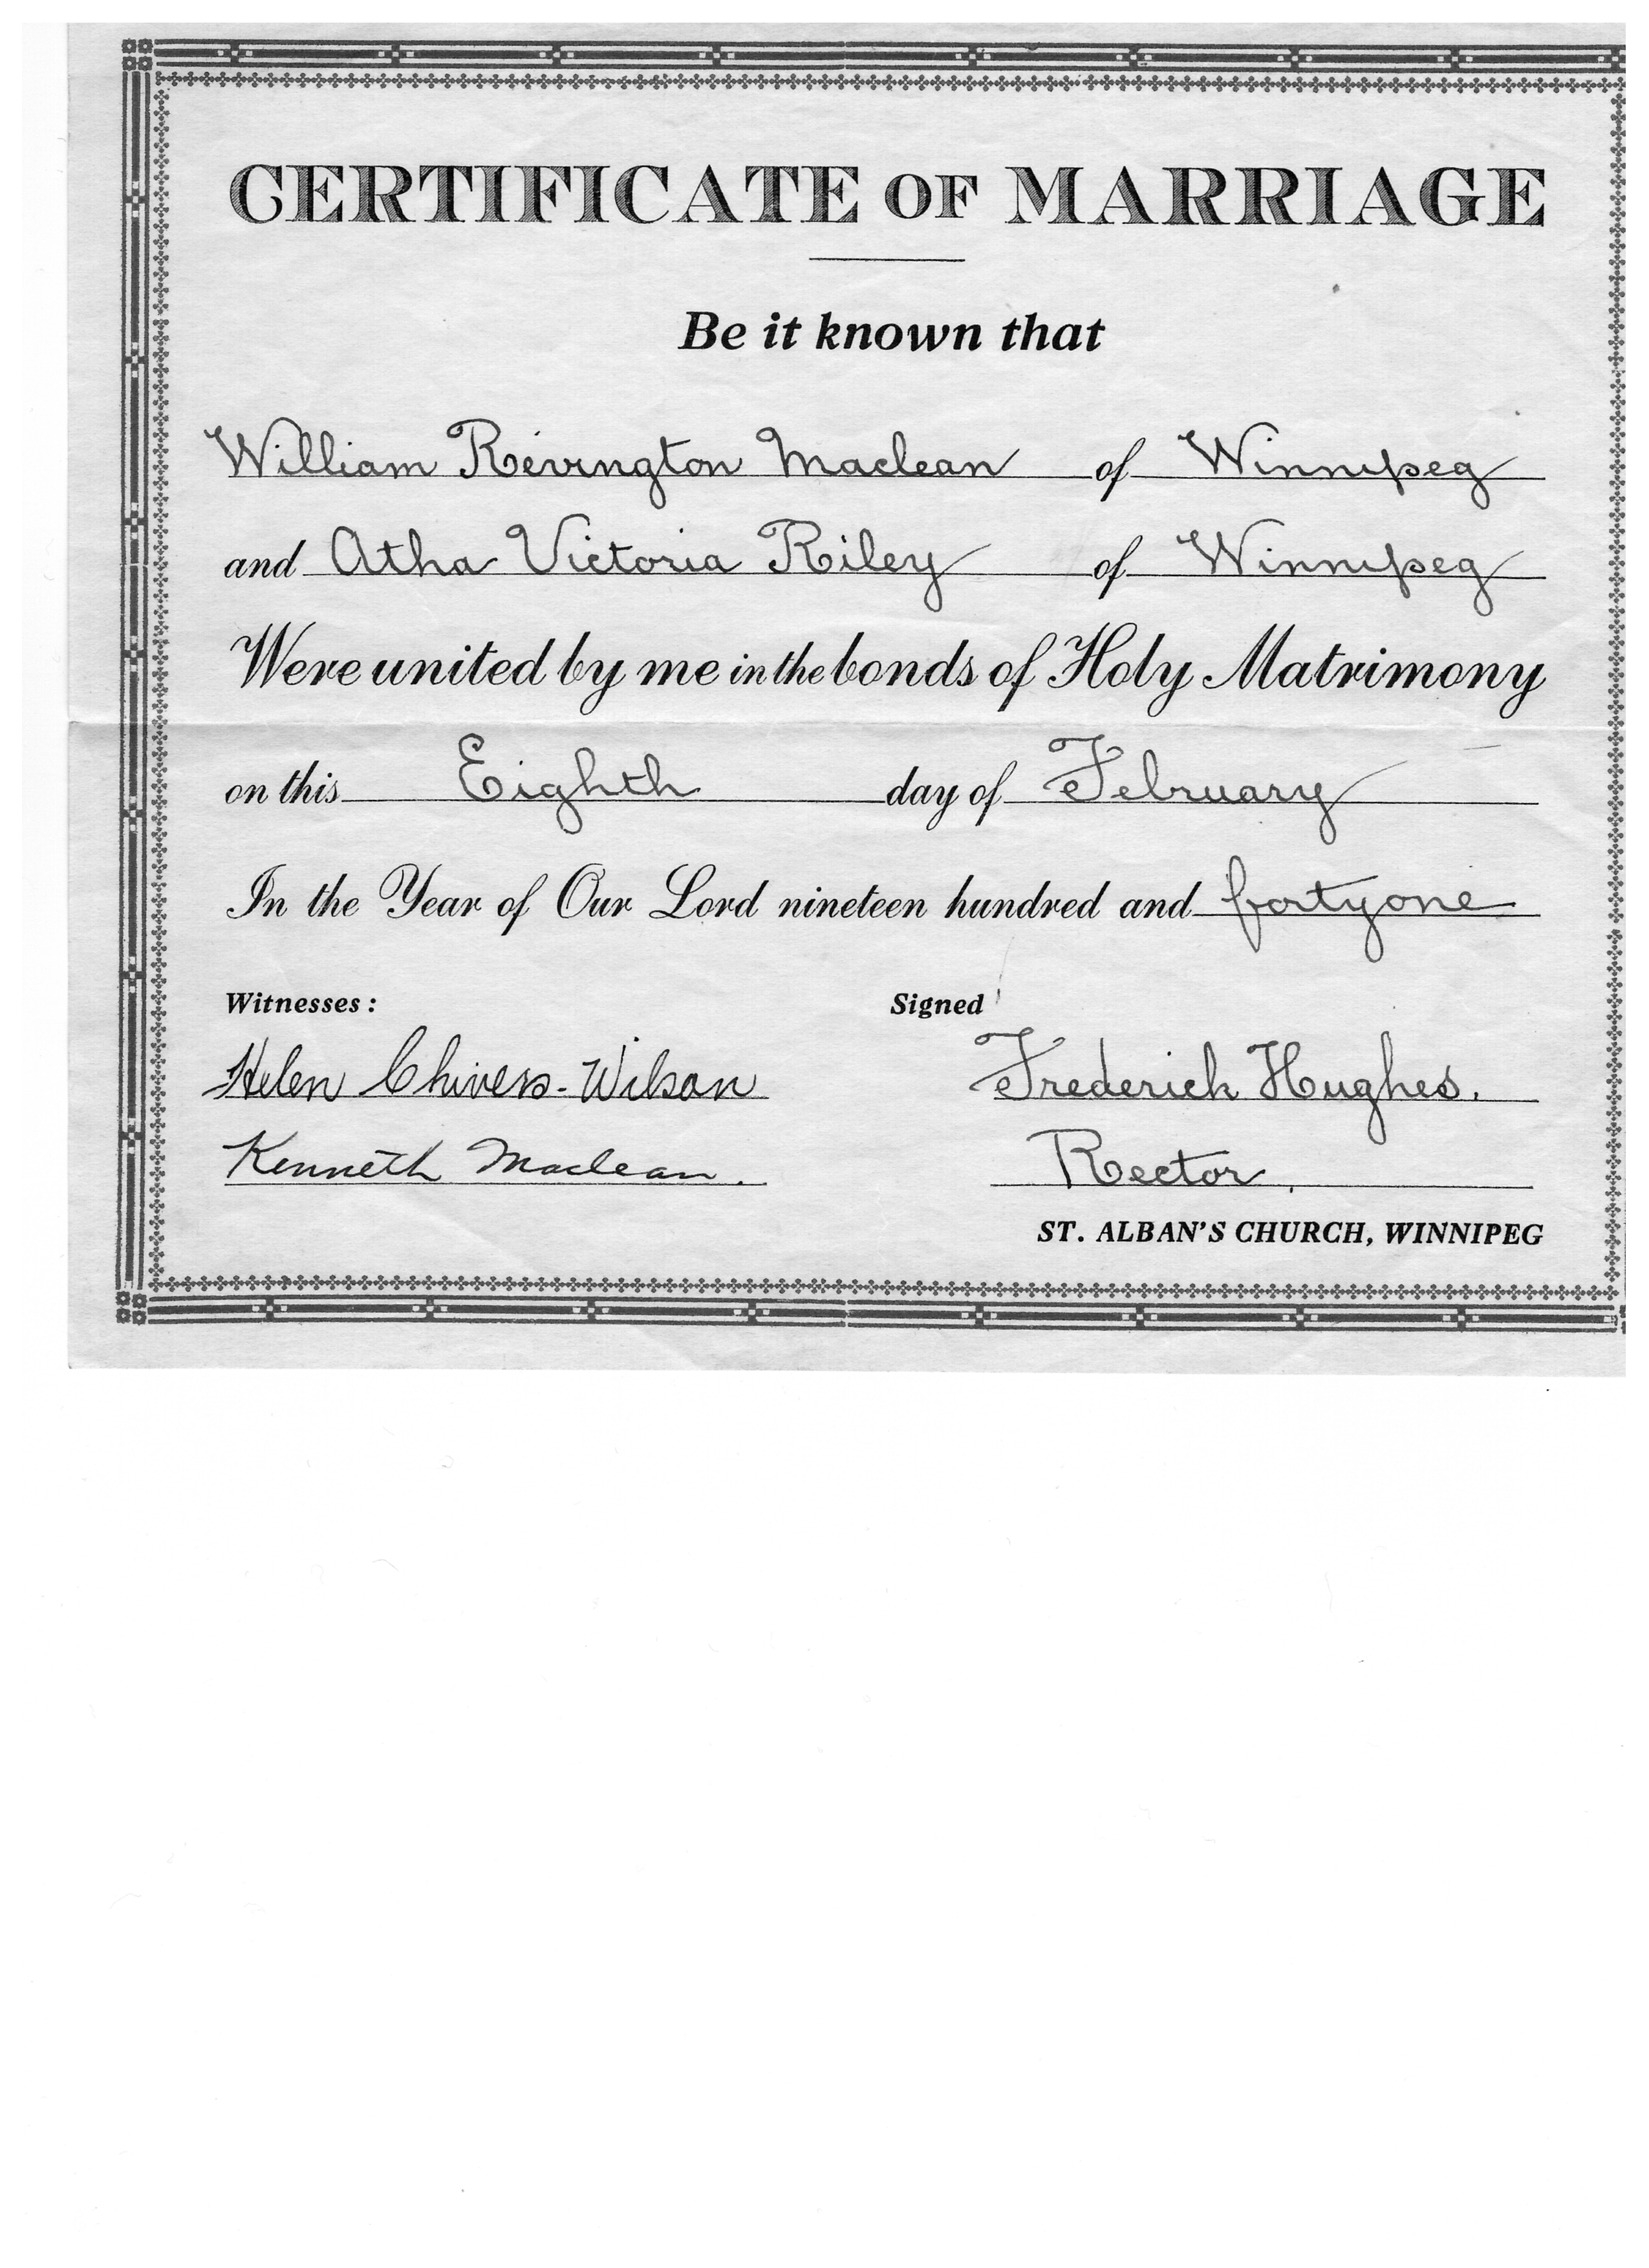 CERTIFICATE OF MARRIAGE
Be it known that
William Revington Maclean of Winnipeg
and Atha Victoria Riley of Winnipeg
Were united by me in the bonds of Holy Matrimony
on this Eighth day of February
In the Year of Our Lord nineteen hundred and forty one
Witnesses: Signed
Helen Chivers-Wilson Frederick Hughes.
Kenneth Maclean. Rector.
ST. ALBAN'S CHURCH, WINNIPEG